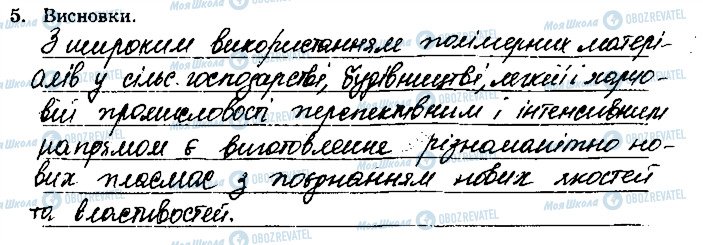 5. Висновки.
З широким використанням полімерних матері-
алів у сільс. господарстві, будівництві, легкій і харчо-
вій промисловості перспективним і інтенсивним
напрямом є виготовлення різноманітно но-
вих пласмас з поєднанням нових якостей
та властивостей.